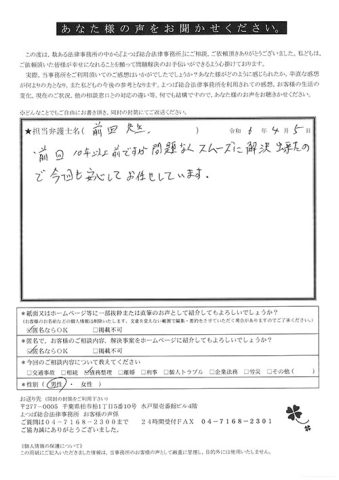 あなた様の声をお聞かせください。
この度は、数ある法律事務所の中から『よつば総合法律事務所』にご相談、ご依頼頂きありがとうございました。私どもは、
ご依頼頂いた皆様が幸せになれることを願って問題解決のお手伝いができるよう心掛けております。
実際、当事務所をご利用頂いてのご感想はいかがでしたでしょうか？あなた様がどのように感じられたか、率直な感想
が何よりの力となり、また私どもの今後の参考となります。よつば総合法律事務所を利用されての感想、お客様の生活の
変化、現在のご状況、他の相談窓口との対応の違い等、何でも結構ですので、あなた様の声をお聴きかせください。
※どんなことでもご自由にお書き頂き、同封の封筒にてご返送ください。
★担当弁護士名（前田 先生 ） 令和 6 年 4 月 5 日
前回 10年以上前ですが 問題なく スムーズに解決 出来たの
で 今回も 安心して お任せしています。
＊紙面又はホームページ等に一部抜粋または直筆のお声として紹介してもよろしいでしょうか？
☑匿名ならOK □掲載不可
＊匿名で、お客様のご相談内容、解決事案をホームページに紹介してもよろしいでしょうか？
☑匿名ならOK □掲載不可
＊今回のご相談内容について教えてください
□交通事故 □相続 ☑債務整理 □離婚 □刑事 □個人トラブル □企業法務 □労災 □その他（ ）
＊性別（ 男性 ・ 女性 ）
お送り先（同封の封筒をご利用下さい）
〒277-0005 千葉県柏市柏1丁目5番10号 水戸屋壱番館ビル4階
よつば総合法律事務所 お客様の声係
ご質問は04-7168-2300まで 24時間受付FAX 04-7168-2301
ご協力誠にありがとうございました。
《個人情報の保護について》
この用紙にご記入いただきました情報は、当事務所のお客様の声として厳重に管理し、目的外には使用いたしません。